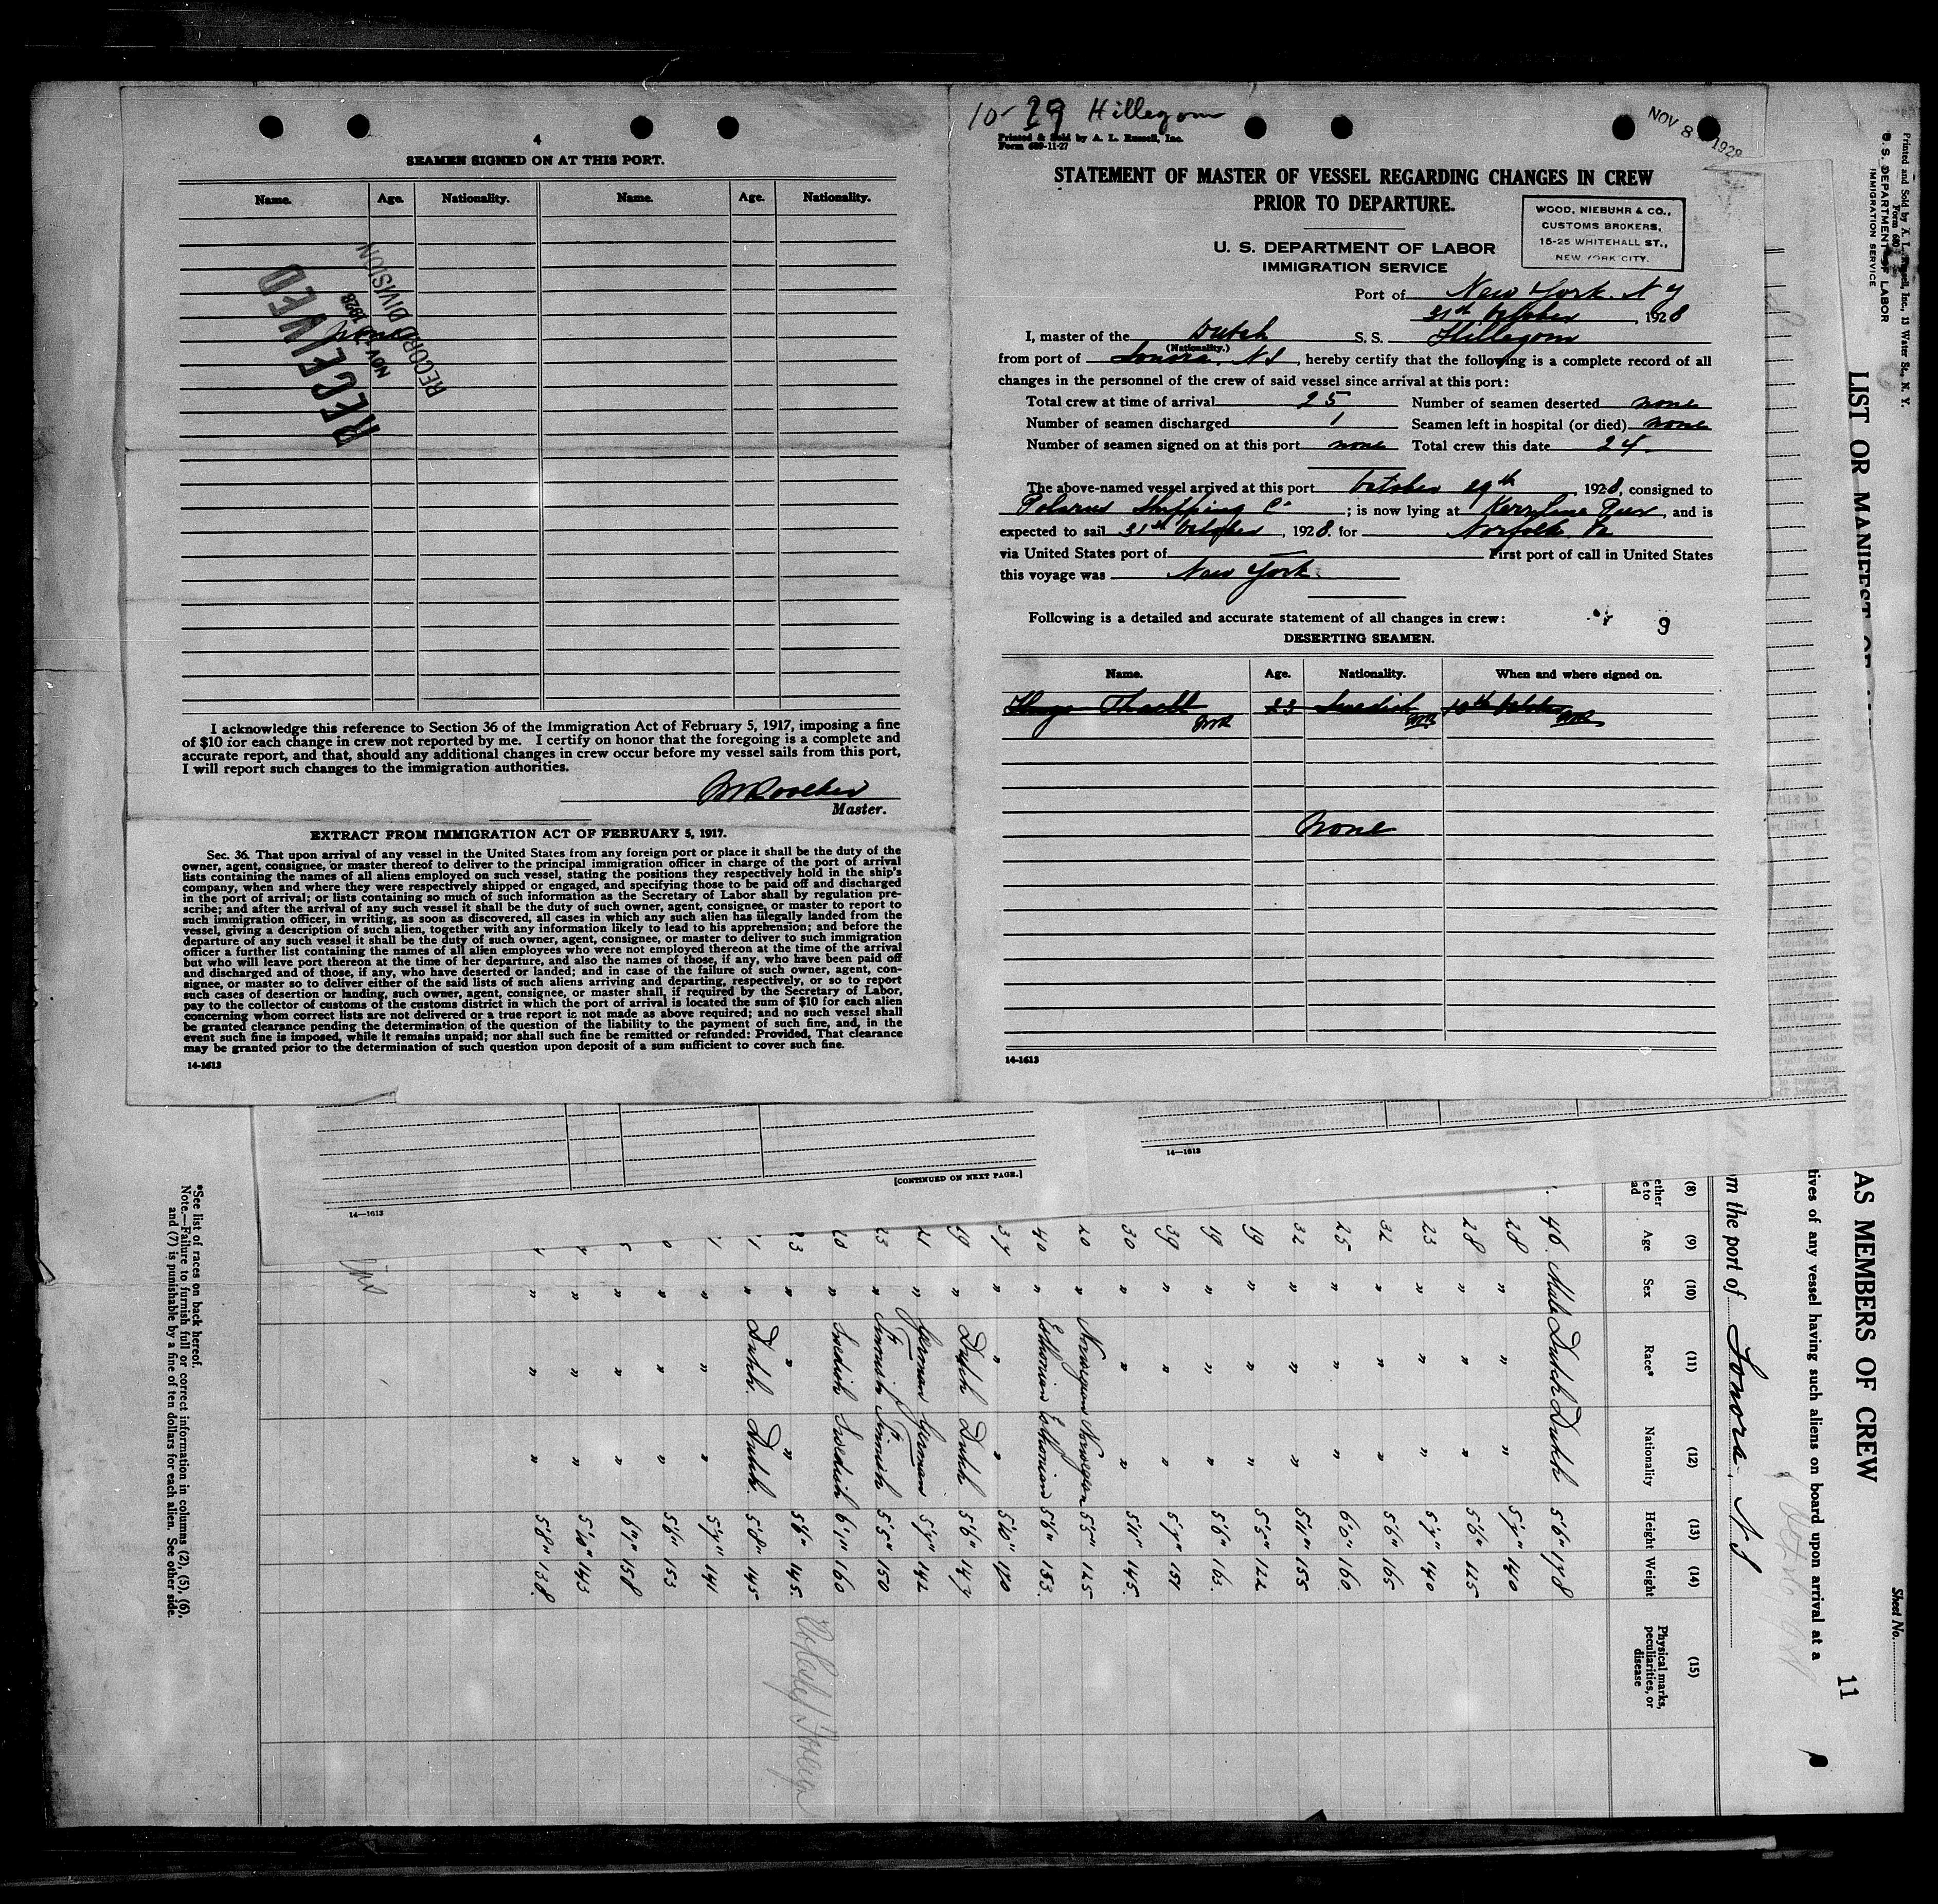 4
SEAMEN SIGNED ON AT THIS PORT.
Name. Age. Nationality. Name. Age. Nationality.
none
RECEIVED
NOV 1928
RECORD DIVISION
I acknowledge this reference to Section 36 of the Immigration Act of February 5, 1917, imposing a fine
of $10 for each change in crew not reported by me. I certify on honor that the foregoing is a complete and
accurate report, and that, should any additional changes in crew occur before my vessel sails from this port,
I will report such changes to the immigration authorities.
Master.
EXTRACT FROM IMMIGRATION ACT OF FEBRUARY 5, 1917.
Sec. 36. That upon arrival of any vessel in the United States from any foreign port or place it shall be the duty of the
owner, agent, consignee, or master thereof to deliver to the principal immigration officer in charge of the port of arrival
lists containing the names of all aliens employed on such vessel, stating the positions they respectively hold in the ship's
company, when and where they were respectively shipped or engaged, and specifying those to be paid off and discharged
in the port of arrival; or lists containing so much of such information as the Secretary of Labor shall by regulation pre-
scribe; and after the arrival of any such vessel it shall be the duty of such owner, agent, consignee, or master to report to
such immigration officer, in writing, as soon as discovered, all cases in which any such alien has illegally landed from the
vessel, giving a description of such alien, together with any information likely to lead to his apprehension; and before the
departure of any such vessel it shall be the duty of such owner, agent, consignee, or master to deliver to such immigration
officer a further list containing the names of all alien employees who were not employed thereon at the time of the arrival
but who will leave port thereon at the time of her departure, and also the names of those, if any, who have been paid off
and discharged and of those, if any, who have deserted or landed; and in case of the failure of such owner, agent, con-
signee, or master so to deliver either of the said lists of such aliens arriving and departing, respectively, or so to report
such cases of desertion or landing, such owner, agent, consignee, or master shall, if required by the Secretary of Labor,
pay to the collector of customs of the customs district in which the port of arrival is located the sum of $10 for each alien
concerning whom correct lists are not delivered or a true report is not made as above required; and no such vessel shall
be granted clearance pending the determination of the question of the liability to the payment of such fine, and, in the
event such fine is imposed, while it remains unpaid; nor shall such fine be remitted or refunded: Provided, That clearance
may be granted prior to the determination of such question upon deposit of a sum sufficient to cover such fine.
14-1613
10-29 Hillegom
NOV 8 1928
Printed & Sold by A. L. Russell, Inc.
Form 689-11-27
STATEMENT OF MASTER OF VESSEL REGARDING CHANGES IN CREW
PRIOR TO DEPARTURE.
WOOD, NIEBUHR & CO.,
CUSTOMS BROKERS,
15-25 WHITEHALL ST.,
NEW YORK CITY.
U. S. DEPARTMENT OF LABOR
IMMIGRATION SERVICE
Port of New York. N Y
31th October, 1928
I, master of the Dutch S. S. Hillegom
(Nationality.)
from port of Sonora. N S, hereby certify that the following is a complete record of all
changes in the personnel of the crew of said vessel since arrival at this port:
Total crew at time of arrival 25 Number of seamen deserted none
Number of seamen discharged 1 Seamen left in hospital (or died) none
Number of seamen signed on at this port none Total crew this date 24.
The above-named vessel arrived at this port October 29th, 1928, consigned to
Polarus Shipping Co; is now lying at Kerrline Pier, and is
expected to sail 31th October, 1928. for Norfolk. Va
via United States port of First port of call in United States
this voyage was New York.
Following is a detailed and accurate statement of all changes in crew:
9
DESERTING SEAMEN.
Name. Age. Nationality. When and where signed on.
23 Swedish
none
14-1613
[CONTINUED ON NEXT PAGE.]
14—1613
14—1613
Printed and Sold by A. L. Russell, Inc., 13 Water St., N. Y.
Form 680
U. S. DEPARTMENT OF LABOR
IMMIGRATION SERVICE
LIST OR MANIFEST OF
AS MEMBERS OF CREW
Sheet No.
11
tives of any vessel having such aliens on board upon arrival at a
om the port of Sonora. N.S
(8) (9) (10) (11) (12) (13) (14) (15)
Age Sex Race* Nationality Height Weight Physical marks, peculiarities, or disease
46. Male Dutch Dutch 5'6" 178
28 " " " 5'7" 140
28 " " " 5'6" 125
23 " " " 5'7" 140
32 " " " 5'6" 165
25 " " " 6'0" 160.
32 " " " 5'11" 155
19 " " " 5'5" 122
19 " " " 5'6" 165.
39 " " " 5'7" 151
30 " " " 5'11" 145.
20 " Norwegian Norwegian 5'5" 125
40 " Esthonian Esthonian 5'6" 153.
37 " " " 5'10" 170
19 " Dutch Dutch 5'6" 147
21 " German German 5'7" 142
23 " Finnish Finnish 5'5" 150
20 " Swedish Swedish 6'1" 160
23 " " " 5'6" 145.
" Dutch. Dutch. 5'8" 145.
" " " 5'7" 141.
" " " 5'6" 153
" " " 6'1" 158
" " " 5'10" 143.
" " " 5'8" 138.
*See list of races on back hereof.
Note.—Failure to furnish full or correct information in columns (2), (5), (6),
and (7) is punishable by a fine of ten dollars for each alien. See other side.